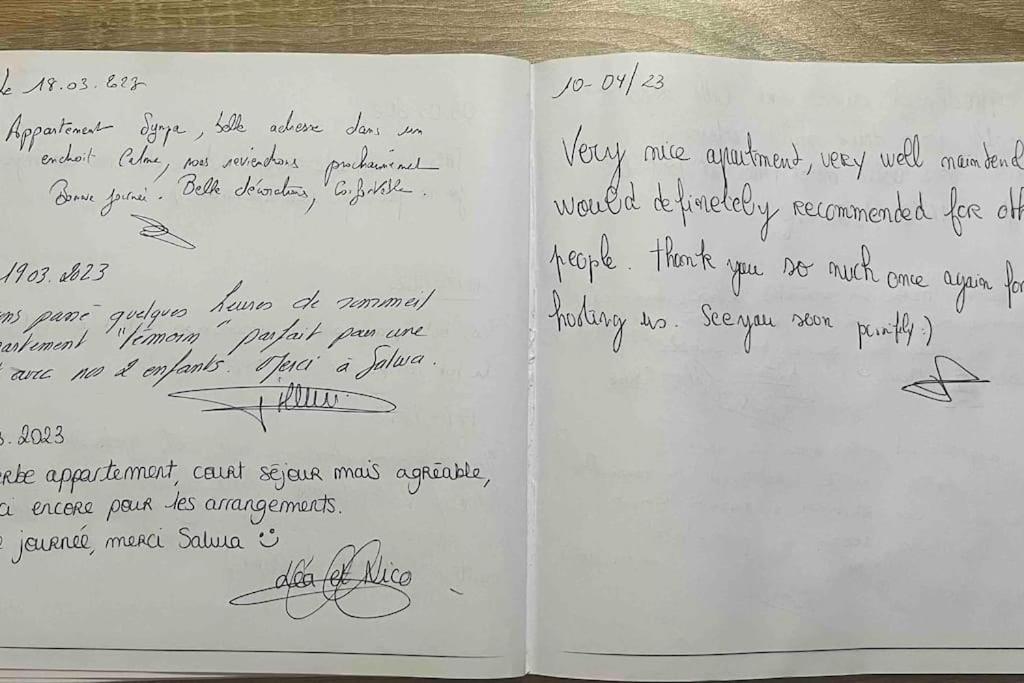 le 18.03.2023
Appartement Sympa, belle adresse dans un
endroit Calme, nous reviendrons prochainement
Bonne journée. Belle décorations, Confortable.
19.03.2023
passé quelques heures de sommeil
"témoin" parfait pour une
avec nos 2 enfants. Merci à Salwa.
.2023
appartement, court séjour mais agréable,
encore pour les arrangements.
journée, merci Salwa :)
Léa et Nico
10-04/23
Very nice apartment, very well maintend
would definetely recommended for oth
people. thank you so much once again for
hosting us. See you soon :)